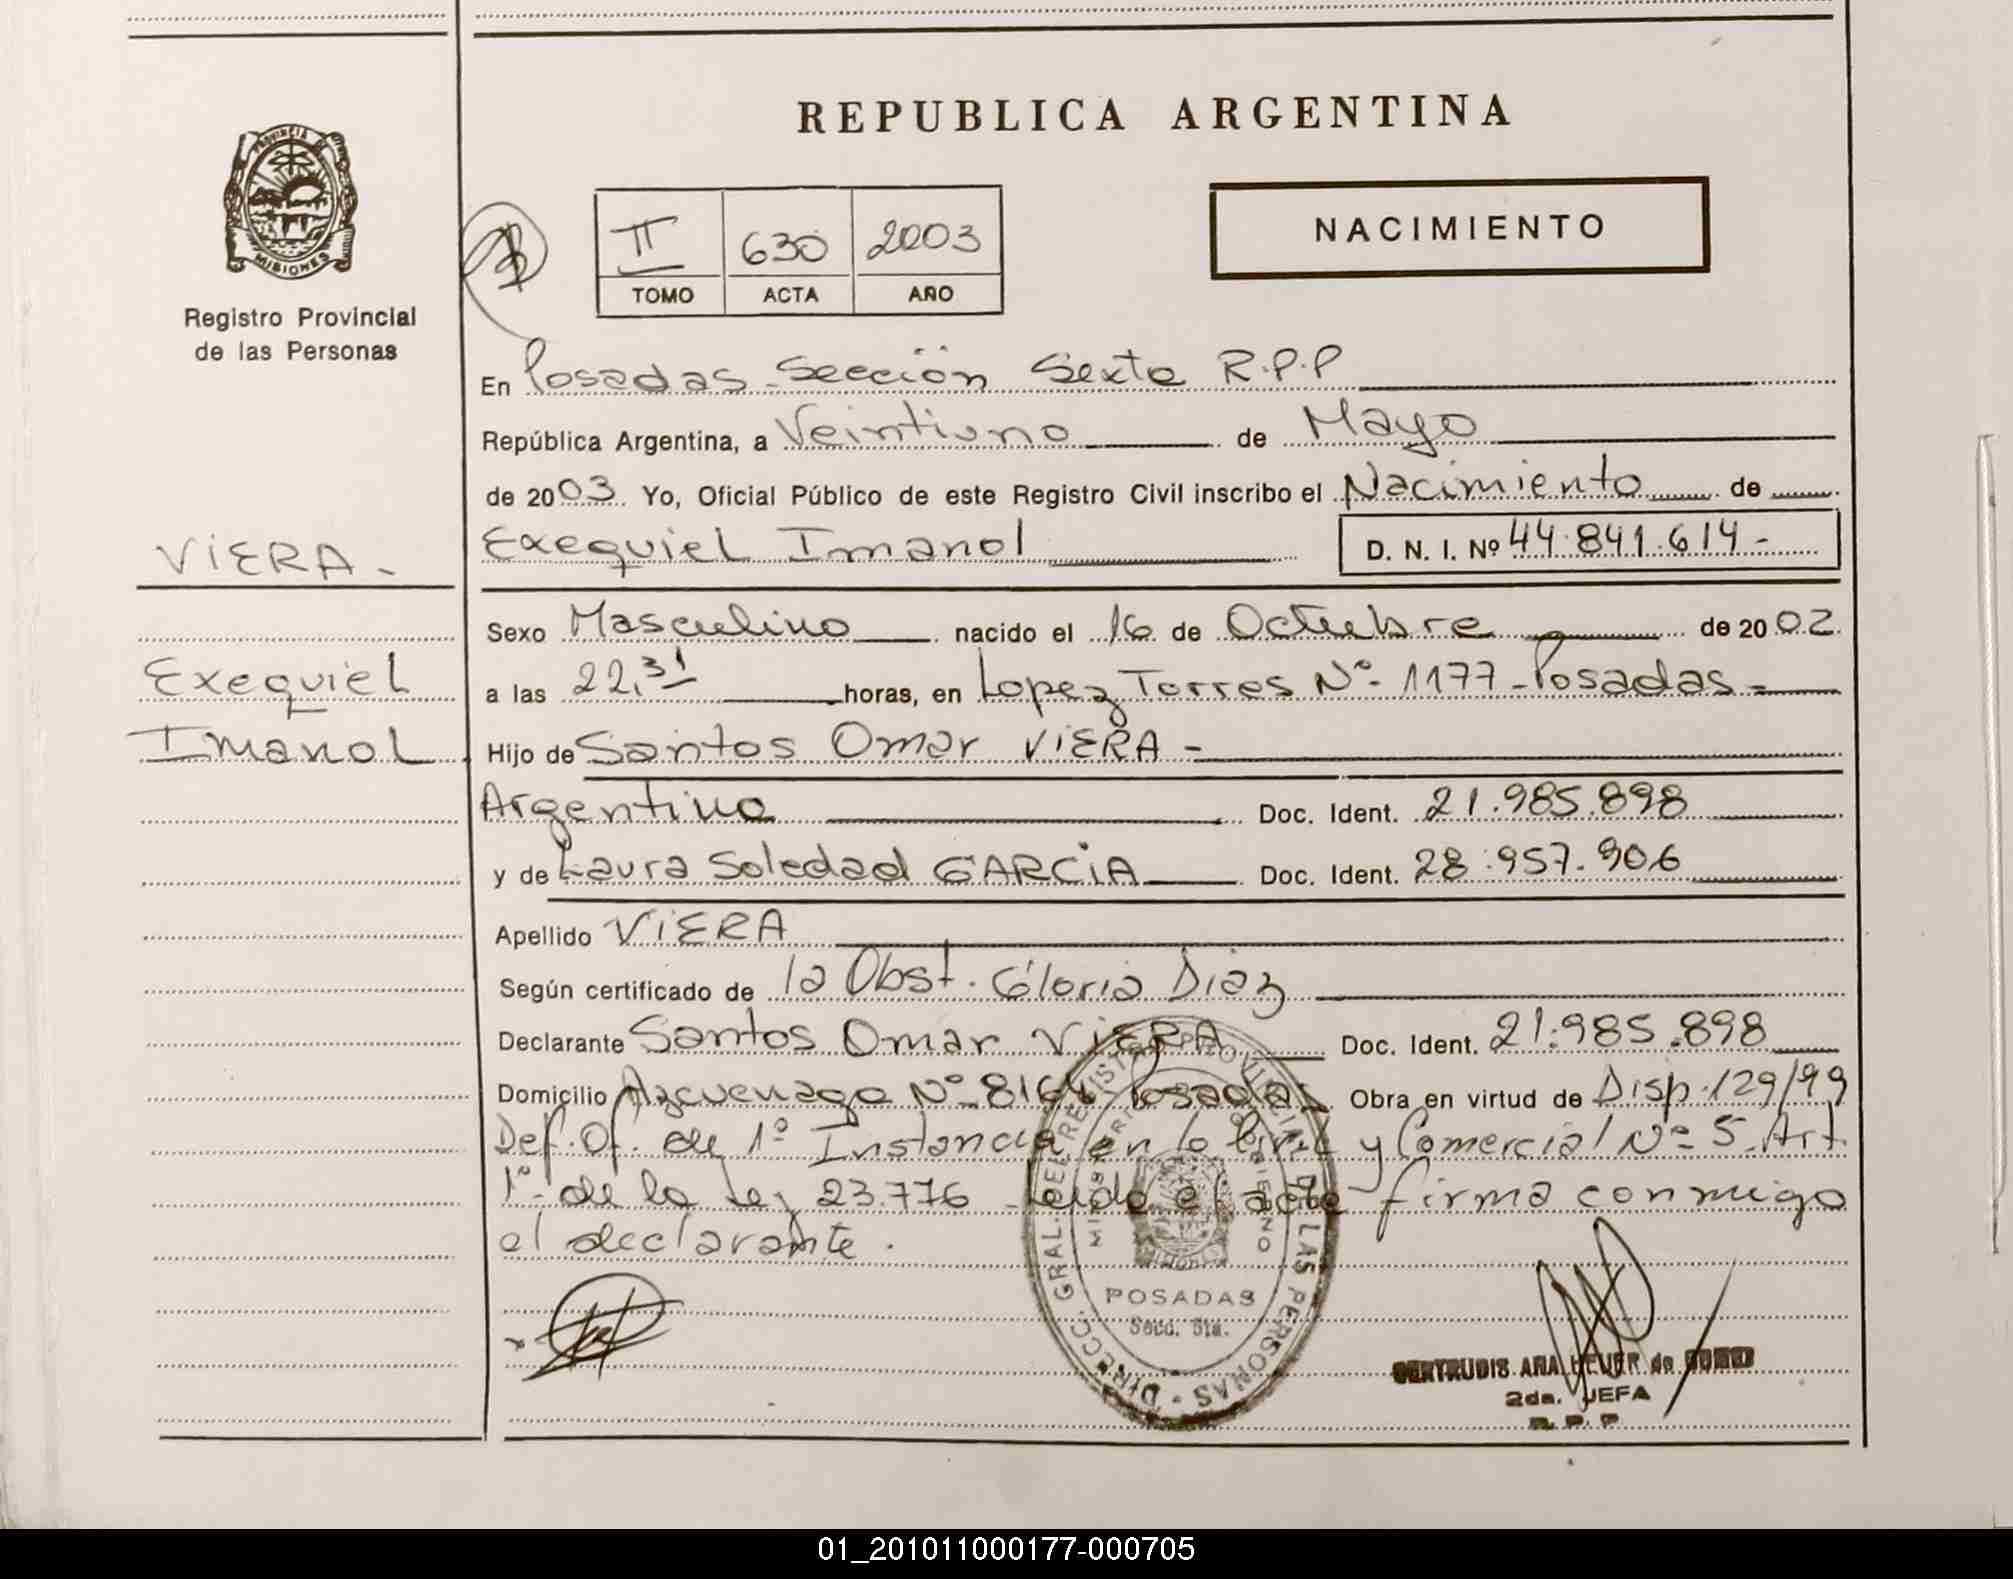 REPUBLICA ARGENTINA
PROVINCIA DE
MISIONES
Registro Provincial
de las Personas
II 630 2003
TOMO ACTA AÑO
NACIMIENTO
En Posadas - Sección Sexta R.P.P
República Argentina, a Veintiuno de Mayo
de 2003. Yo, Oficial Público de este Registro Civil inscribo el Nacimiento de
VIERA - Exequiel Imanol D. N. I. Nº 44.841.614 -
Sexo Masculino nacido el 16 de Octubre de 2002
Exequiel a las 22,31 horas, en Lopez Torres Nº 1177 - Posadas -
Imanol Hijo de Santos Omar VIERA -
Argentino Doc. Ident. 21.985.898
y de Laura Soledad GARCIA Doc. Ident. 28.957.906
Apellido VIERA
Según certificado de la Obst. Gloria Diaz
Declarante Santos Omar VIERA Doc. Ident. 21.985.898
Domicilio Azcuenaga Nº 8164 Posadas Obra en virtud de Disp. 129/99
Def. Of. de 1º Instancia en lo Civil y Comercial Nº 5. Art.
1º de la Ley 23.776 - Leido el acta firma conmigo
el declarante.
DIRECC. GRAL. DEL REGISTRO PROVINCIAL DE LAS PERSONAS
POSADAS
Secc. 6ta.
GERTRUDIS ANA de
2da. JEFA
R. P. P
01_201011000177-000705